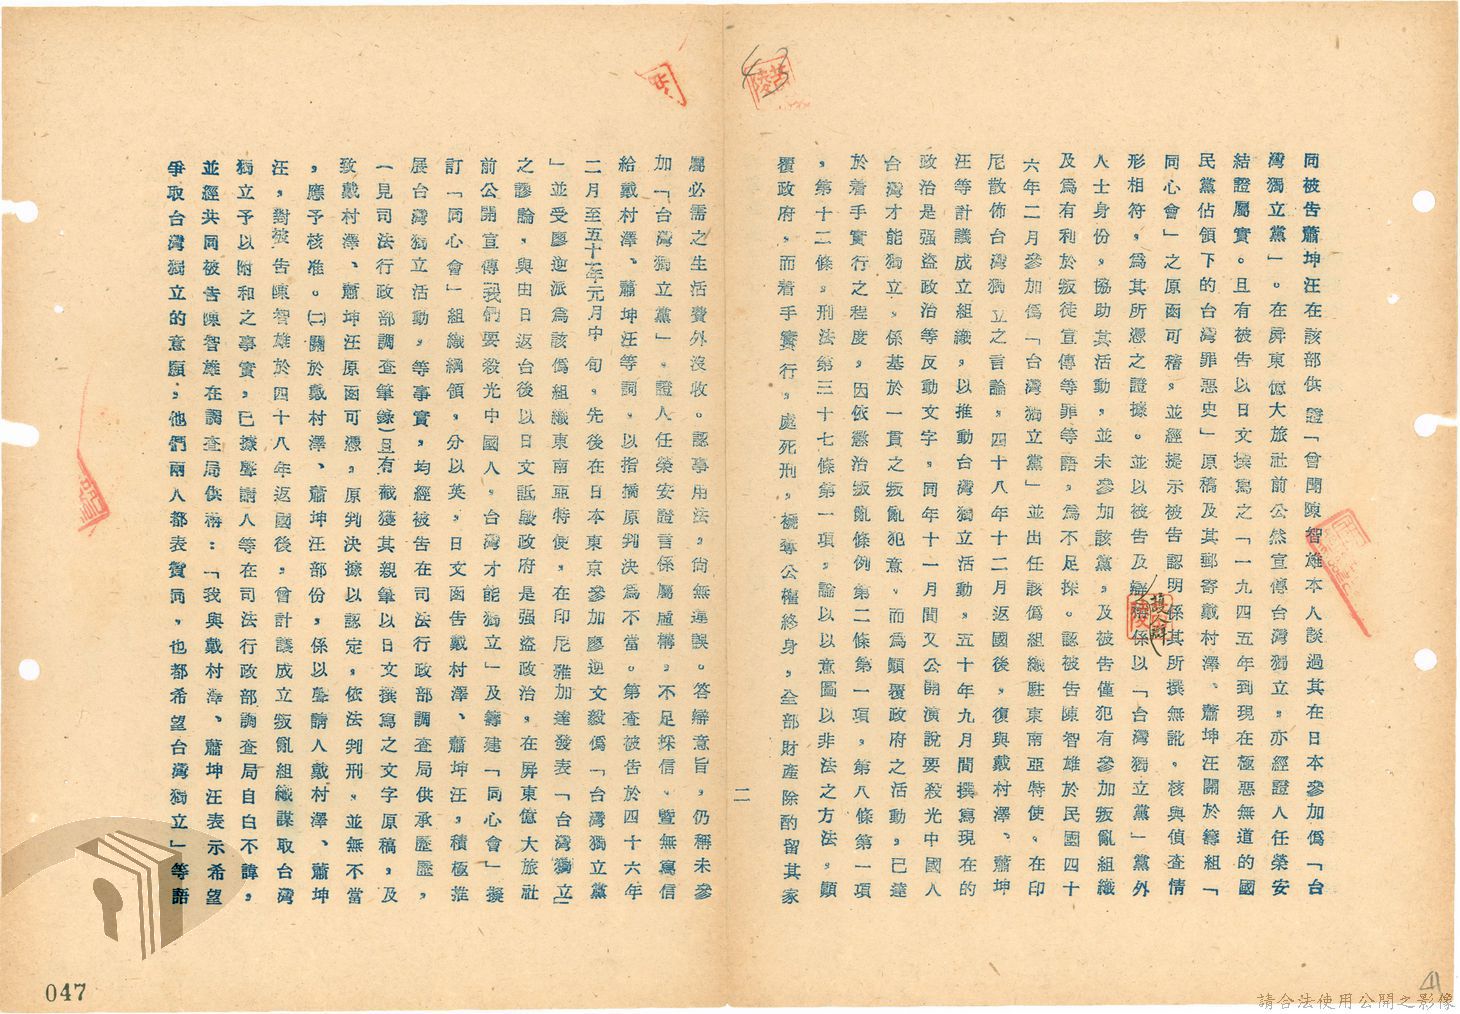 同被告蕭坤汪在該部供證「曾聞陳智雄本人談過其在日本參加偽「台
灣獨立黨」。在屏東億大旅社前公然宣傳台灣獨立，亦經證人任榮安
結證屬實。且有被告以日文撰寫之「一九四五年到現在極惡無道的國
民黨佔領下的台灣罪惡史」原稿及其郵寄戴村澤、蕭坤汪關於籌組「
同心會」之原函可稽，並經提示被告認明係其所撰無訛。核與偵查情
形相符，為其所憑之證據。並以被告及辯係以「台灣獨立黨」黨外
人士身份，協助其活動，並未參加該黨，及被告僅犯有參加叛亂組織
及為有利於叛徒宣傳等罪等語，為不足採。認被告陳智雄於民國四十
六年二月參加偽「台灣獨立黨」並出任該偽組織駐東南亞特使。在印
尼散佈台灣獨立之言論，四十八年十二月返國後，復與戴村澤、蕭坤
汪等計議成立組織，以推動台灣獨立活動，五十年九月間撰寫現在的
政治是强盜政治等反動文字，同年十一月間又公開演說要殺光中國人
台灣才能獨立，係基於一貫之叛亂犯意，而為顛覆政府之活動，已達
於着手實行之程度，因依懲治叛亂條例第二條第一項，第八條第一項
，第十二條，刑法第三十七條第一項，論以以意圖以非法之方法，顛
覆政府，而着手實行，處死刑，褫奪公權終身，全部財產除酌留其家
二
屬必需之生活費外沒收。認事用法，尚無違誤。答辯意旨，仍稱未參
加「台灣獨立黨」，證人任榮安證言係屬虛構，不足採信，暨無寫信
給戴村澤、蕭坤汪等詞，以指摘原判決為不當。第查被告於四十六年
二月至五十一年元月中旬，先後在日本東京參加廖逆文毅偽「台灣獨立黨
」並受廖逆派為該偽組織東南亞特使，在印尼雅加達發表「台灣獨立」
之謬論，與由日返台後以日文詆毀政府是强盜政治。在屏東億大旅社
前公開宣傳「我們要殺光中國人，台灣才能獨立」及籌建「同心會」擬
訂「同心會」組織綱領，分以英，日文函告戴村澤、蕭坤汪，積極推
展台灣獨立活動，等事實，均經被告在司法行政部調查局供承歷歷，
一見司法行政部調查筆錄）且有截獲其親筆以日文撰寫之文字原稿，及
致戴村澤、蕭坤汪原函可憑，原判決據以認定，依法判刑，並無不當
，應予核准。㈡關於戴村澤、蕭坤汪部份，係以聲請人戴村澤、蕭坤
汪，對被告陳智雄於四十八年返國後，曾計議成立叛亂組織謀取台灣
獨立予以附和之事實，已據聲請人等在司法行政部調查局自白不諱，
並經共同被告陳智雄在調查局供稱：「我與戴村澤、蕭坤汪表示希望
爭取台灣獨立的意願，他們兩人都表贊同，也都希望台灣獨立」等語
047
請合法使用公開之影像